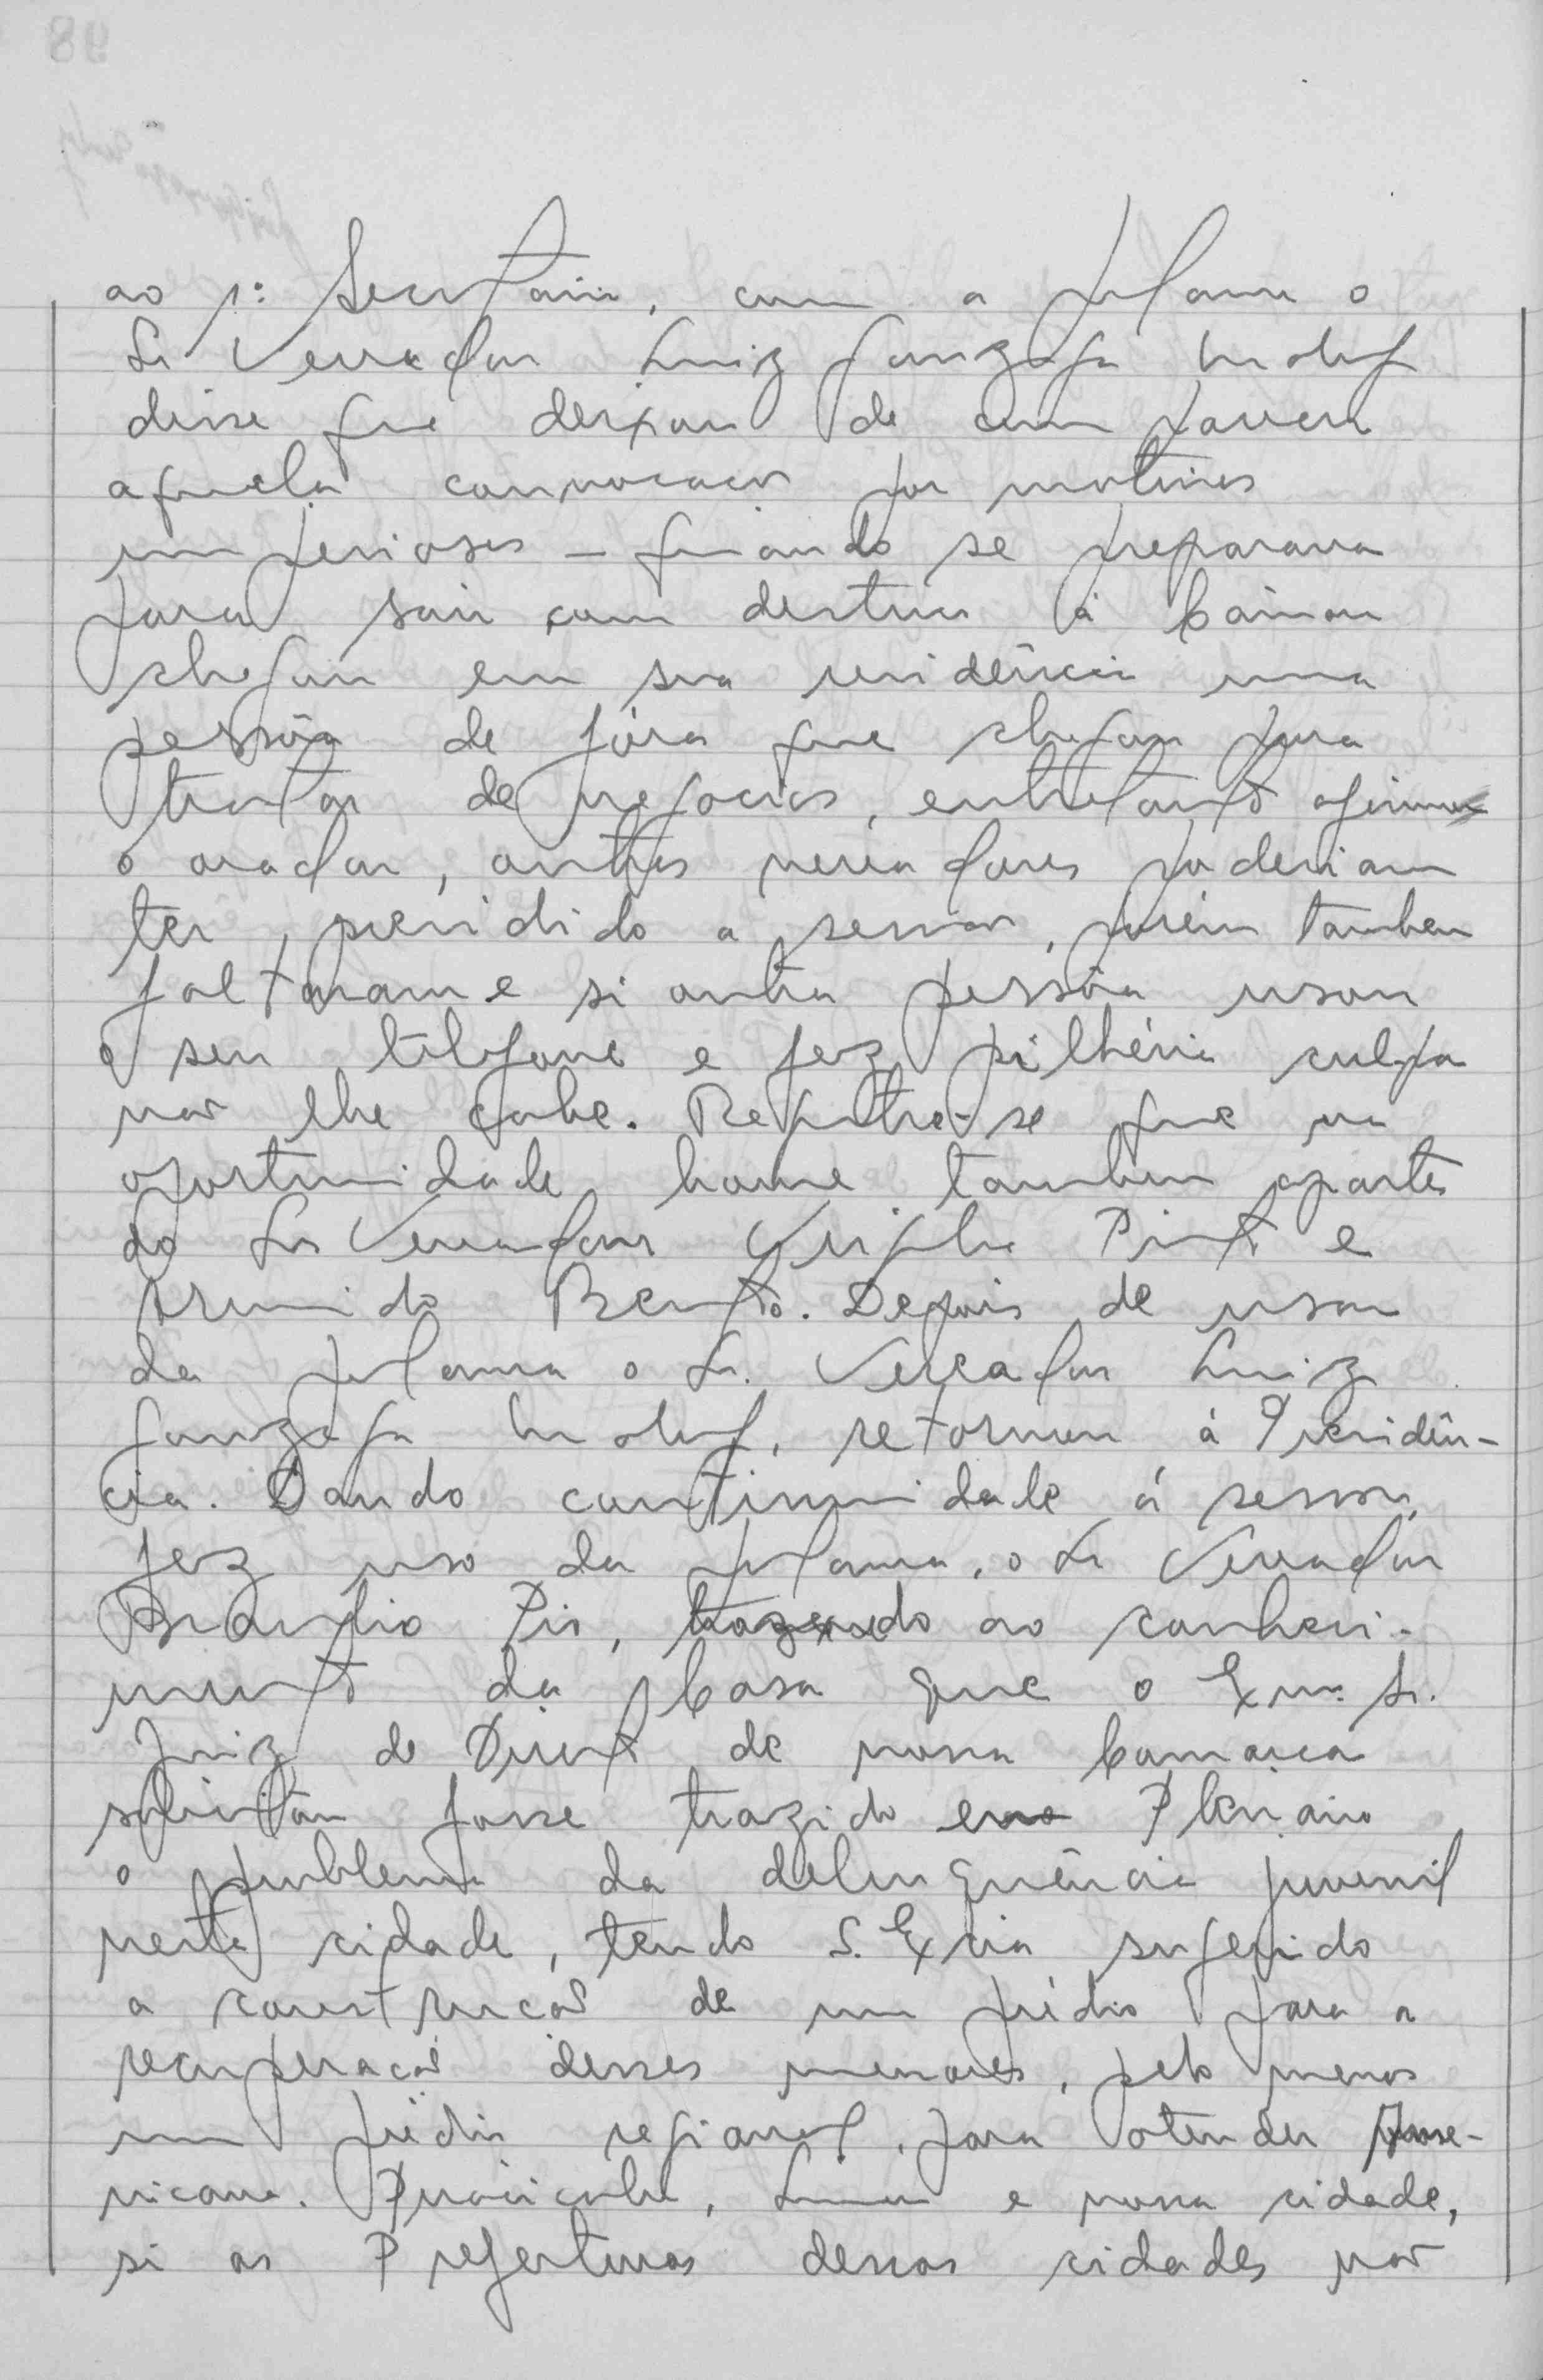 ao 1º Secretario, com a palavra o
Sr Vereador Luiz Gonzaga
disse que deixou de comparecer
aquela convocação por motivos
imperiosos – quando se preparava
para sair com destino à Câmara
chegou em sua residência uma
pessôa de fóra que chegou para
tratar de negocios, entretanto afirmou
o orador, outros vereadores poderiam
ter presidido a sessão, porém tambem
faltaram e si outra pessôa usou
o seu telefone e fez pilhéria culpa
não lhe cabe. Registre-se que na
oportunidade houve tambem apartes
do Srs Vereadores Pinto e
Bento. Depois de usar
da palavra o Sr. Vereador Luiz
Gonzaga retornou á Presidên-
cia. Dando continuidade á sessão,
fez uso da palavra, o Sr Vereador
Braulio Pio, trazendo ao conheci-
mento da Casa que o Exmº Sr.
Juiz de Direito de nossa Comarca
solicitou fosse trazido em Plenário
o problema da delinquência juvenil
nesta cidade, tendo S. Excia sugerido
a construção de um prédio para a
recuperação desses menores, pelo menos
um prédio regional, para atender Ame-
ricana. Piracicaba, Limeira e nossa cidade,
si as Prefeituras dessas cidades não